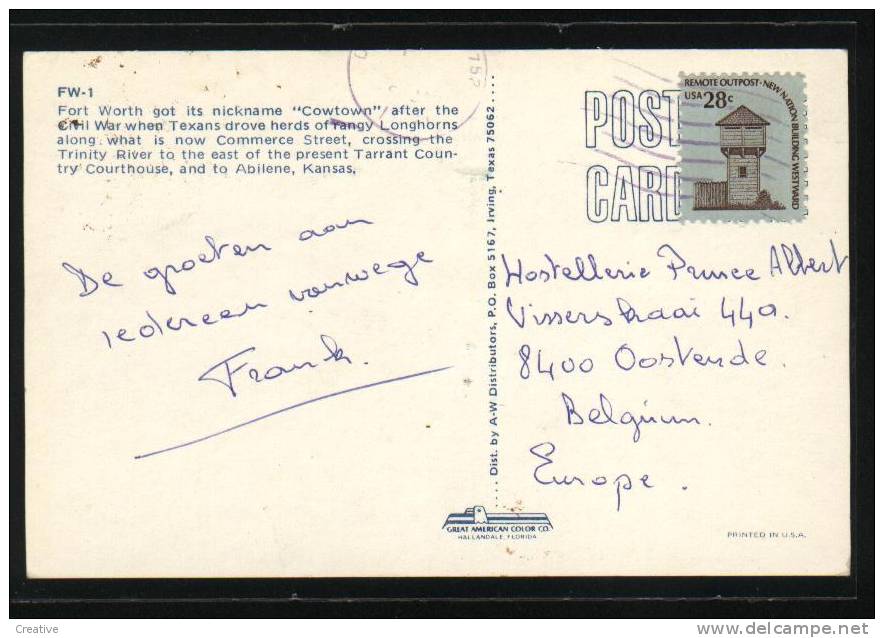 FW-1
Fort Worth got its nickname "Cowtown" after the
Civil War when Texans drove herds of rangy Longhorns
along what is now Commerce Street, crossing the
Trinity River to the east of the present Tarrant Coun-
try Courthouse, and to Abilene, Kansas.
De groeten aan
iedereen vanwege
Frank.
.... Dist. by A-W Distributors, P.O. Box 5167, Irving, Texas 75062 ....
GREAT AMERICAN COLOR CO.
HALLANDALE, FLORIDA
752
POST
CARD
REMOTE OUTPOST·NEW NATION BUILDING WESTWARD
USA 28c
Hostellerie Prince Albert
Visserskaai 44a.
8400 Oostende.
Belgium.
Europe.
PRINTED IN U.S.A.
Creative
http://www.delcampe.net